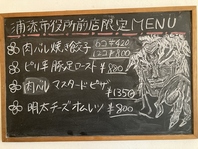 浦添市役所前店限定MENU
肉バル焼き餃子 6コ¥420
12コ¥800
ピリ辛豚足ロースト ¥880
肉バル マスタードピザ ¥1350
明太チーズオムレツ ¥800